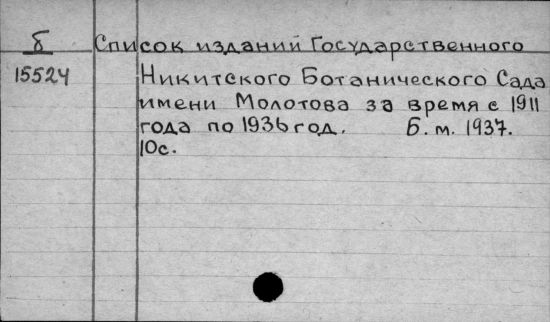 б Список изданий Государственного
15524 Никитского Ботанического Сада
имени Молотова за время с 1911
года по 1936 год. Б. м. 1937.
10с.